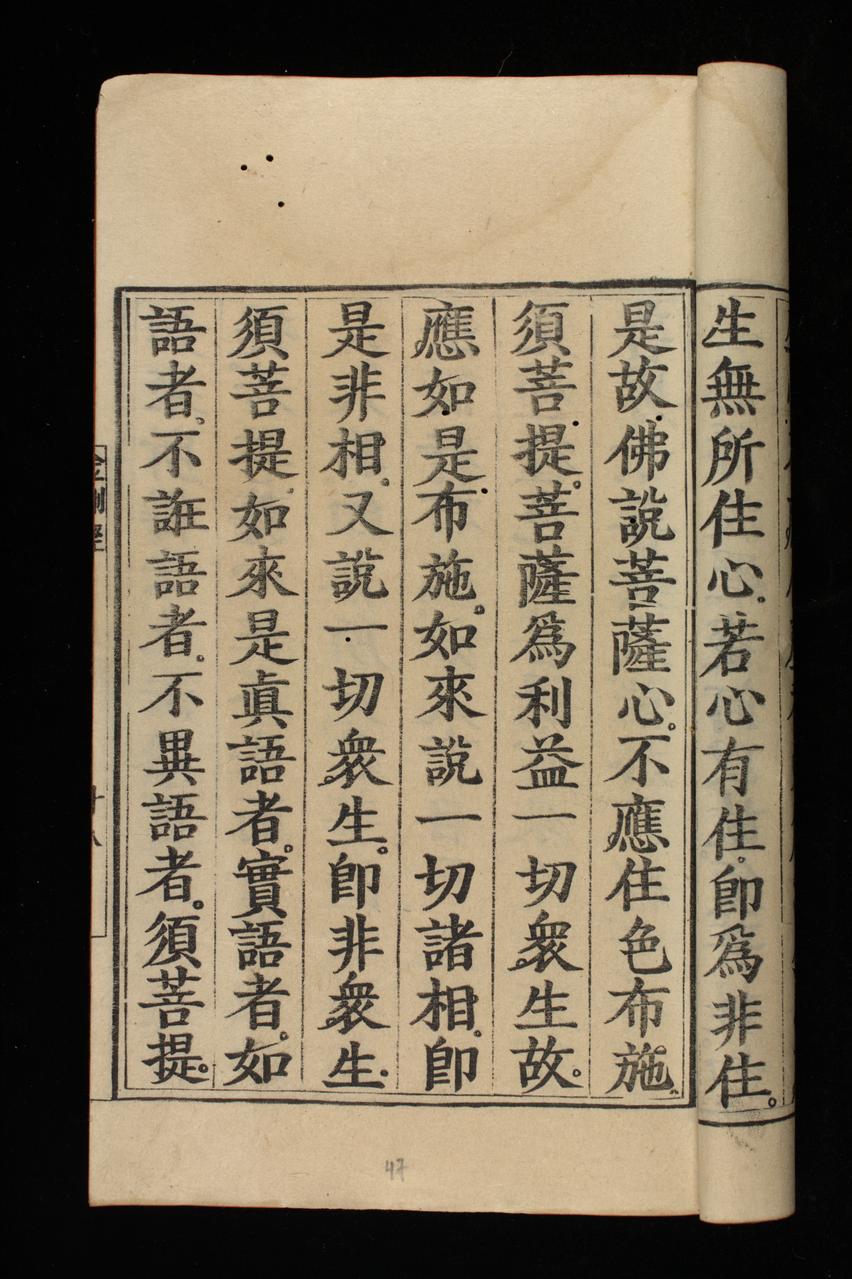 生無所住心。若心有住。卽爲非住。
是故佛說菩薩心。不應住色布施。
須菩提。菩薩爲利益一切衆生故。
應如是布施。如來說一切諸相。卽
是非相。又說一切衆生。卽非衆生。
須菩提。如來是眞語者。實語者。如
語者。不誑語者。不異語者。須菩提。
金剛經
十八
47